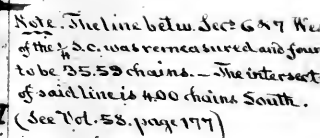 Note. The line betw. Secs 6 & 7 Wes
of the ¼ S.C. was remeasured and four
to be 35.59 chains. — The intersect
of said line is 4.00 chains South.
(See Vol. 58. page 177)